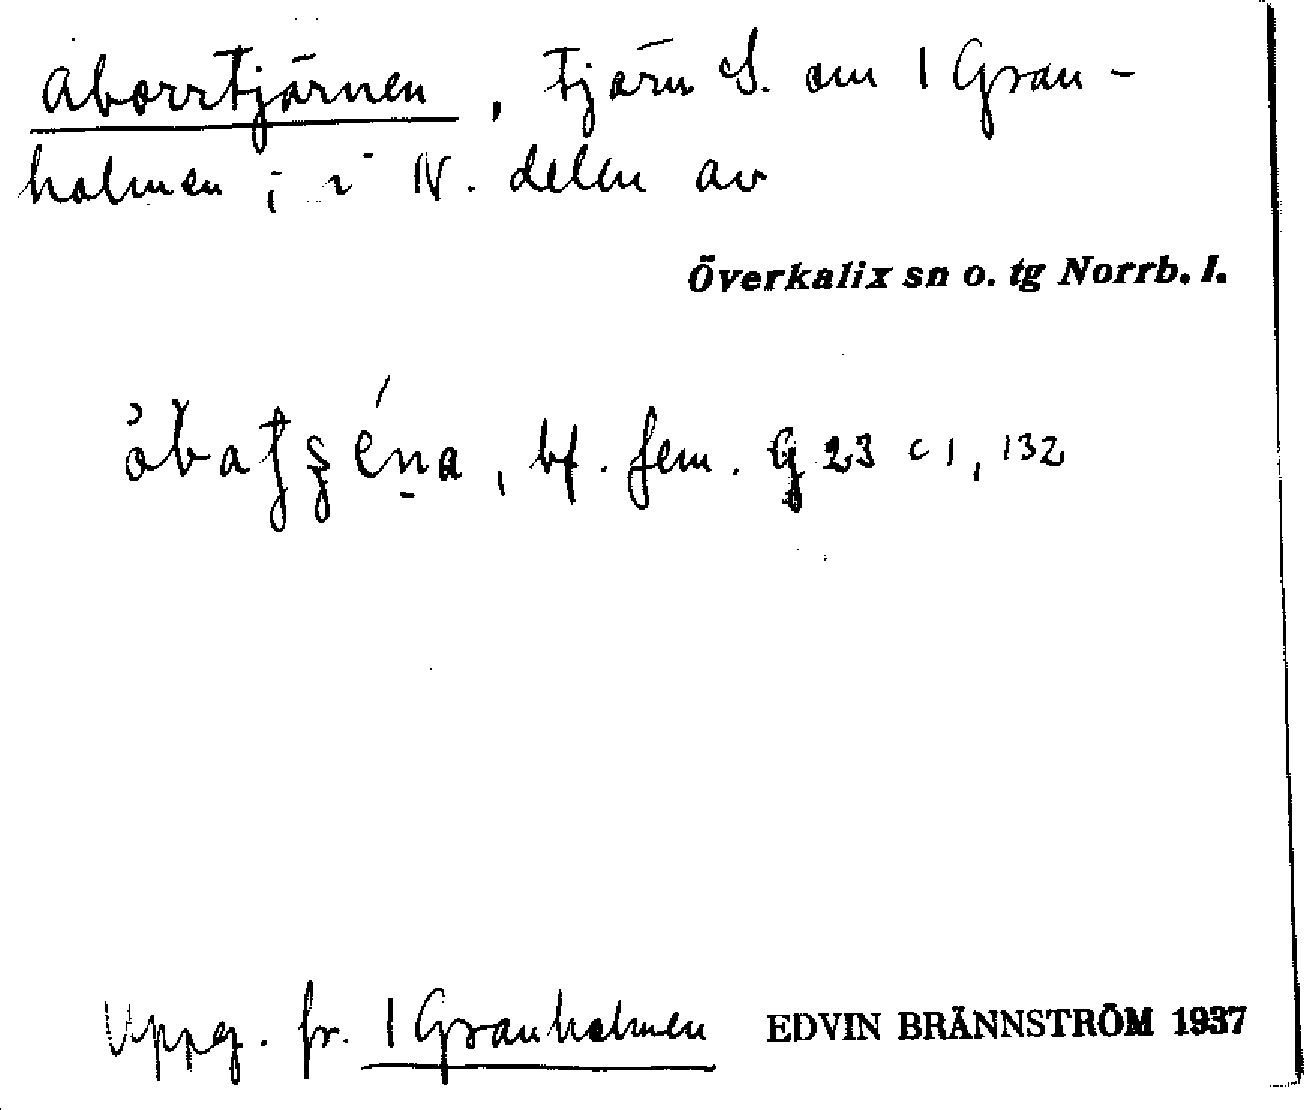 Aborrtjärnen, tjärn S. om 1 Gran-
holmen; i N. delen av
Överkalix sn o. tg Norrb. l.
bf. fem. G 23 c 1, 132
Uppg. fr. 1 Granholmen EDVIN BRÄNNSTRÖM 1937